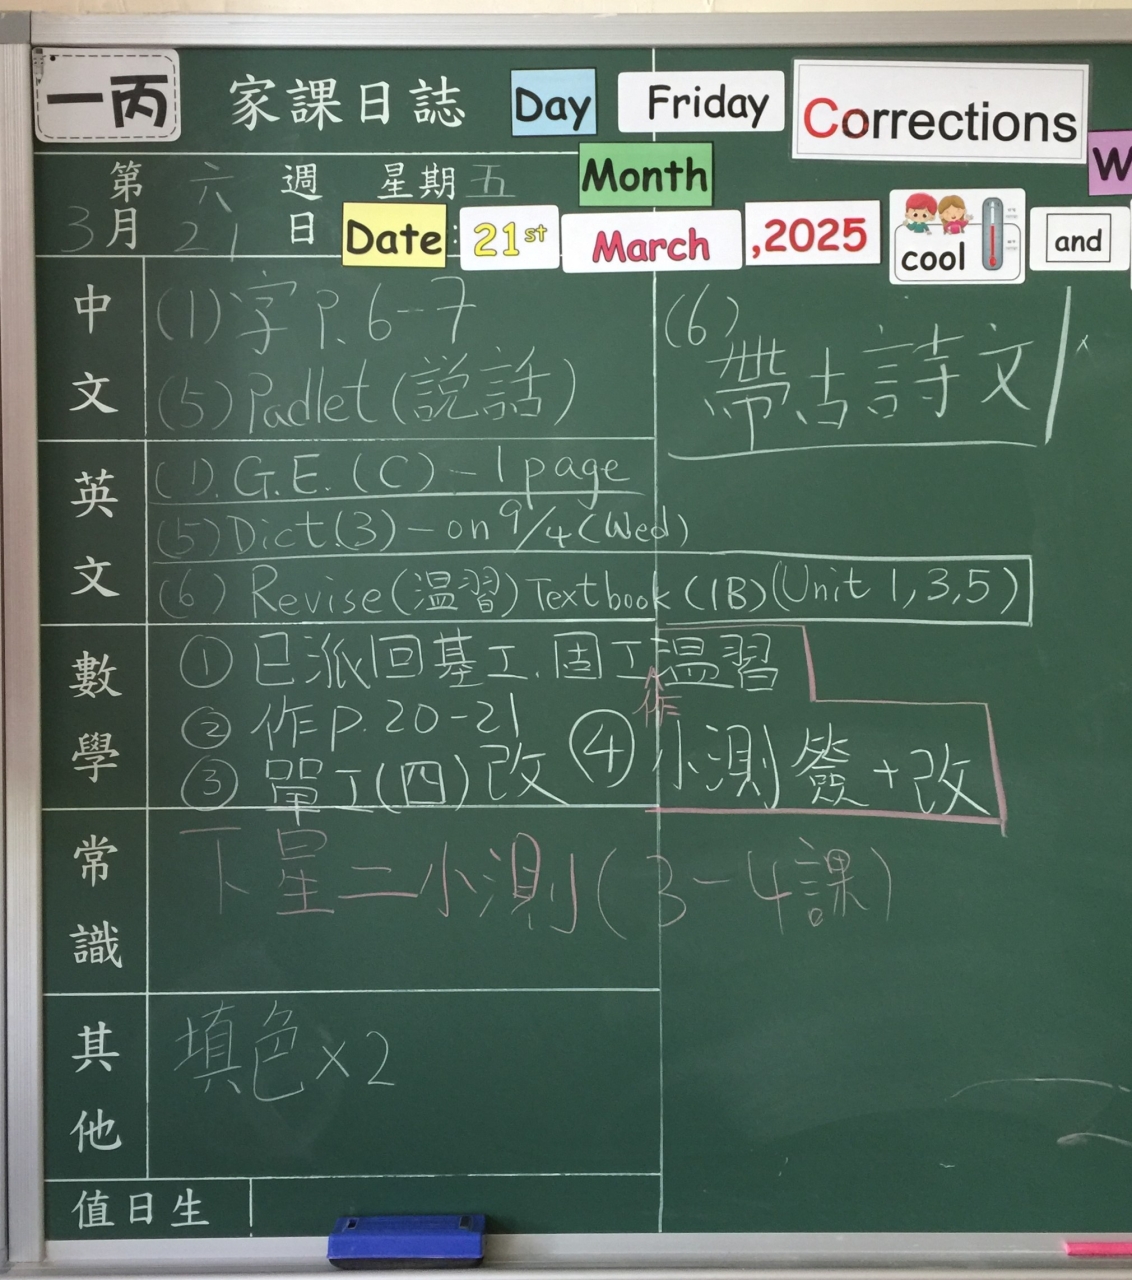 一丙 家課日誌 Day Friday Corrections
Month W
第 六 週 星期 五
3 月 21 日 Date: 21st March ,2025 cool and
中文
(1) 字 P. 6-7
(5) Padlet (說話)
(6) 帶古詩文
英文
(1). G.E. (C) - 1 page
(5) Dict.(3) - on 9/4 (Wed)
(6) Revise (温習) Textbook (1B) (Unit 1,3,5)
數學
① 已派回基工.固工温習
② 作 P. 20-21
③ 單工(四) 改 ④ 作小測 簽+改
常識
下星二小測 (3-4課)
其他
填色 x 2
值日生